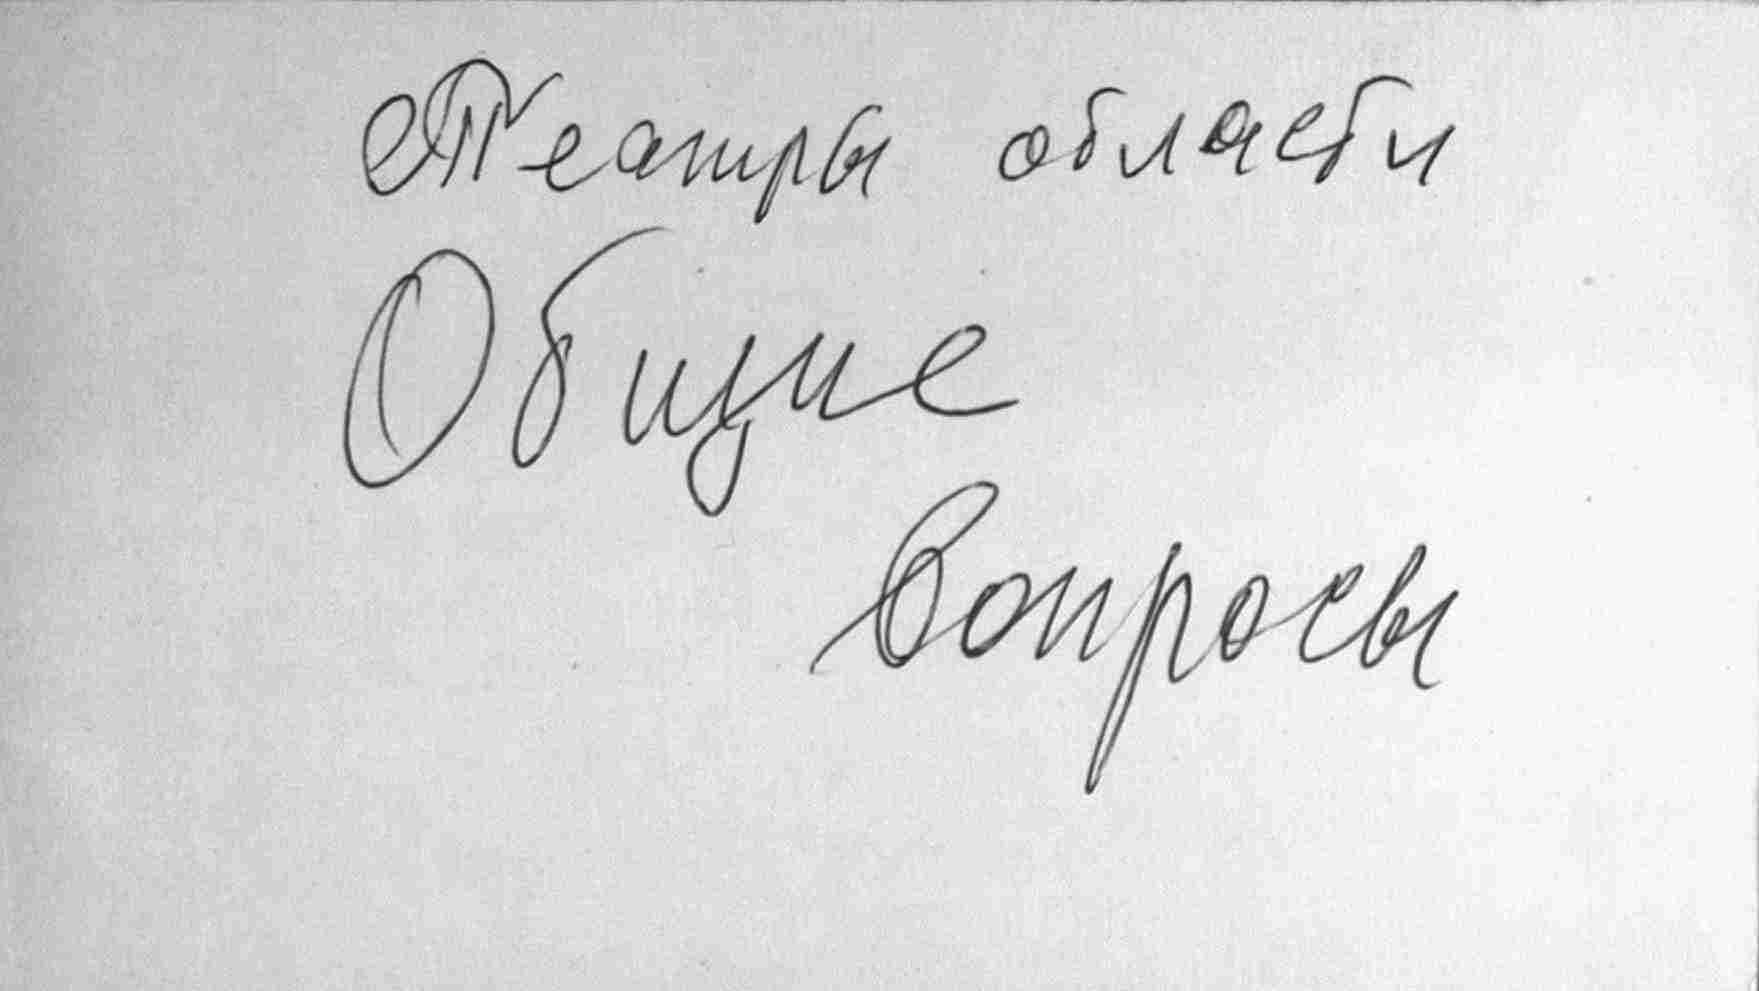 Театры области
Общие
вопросы